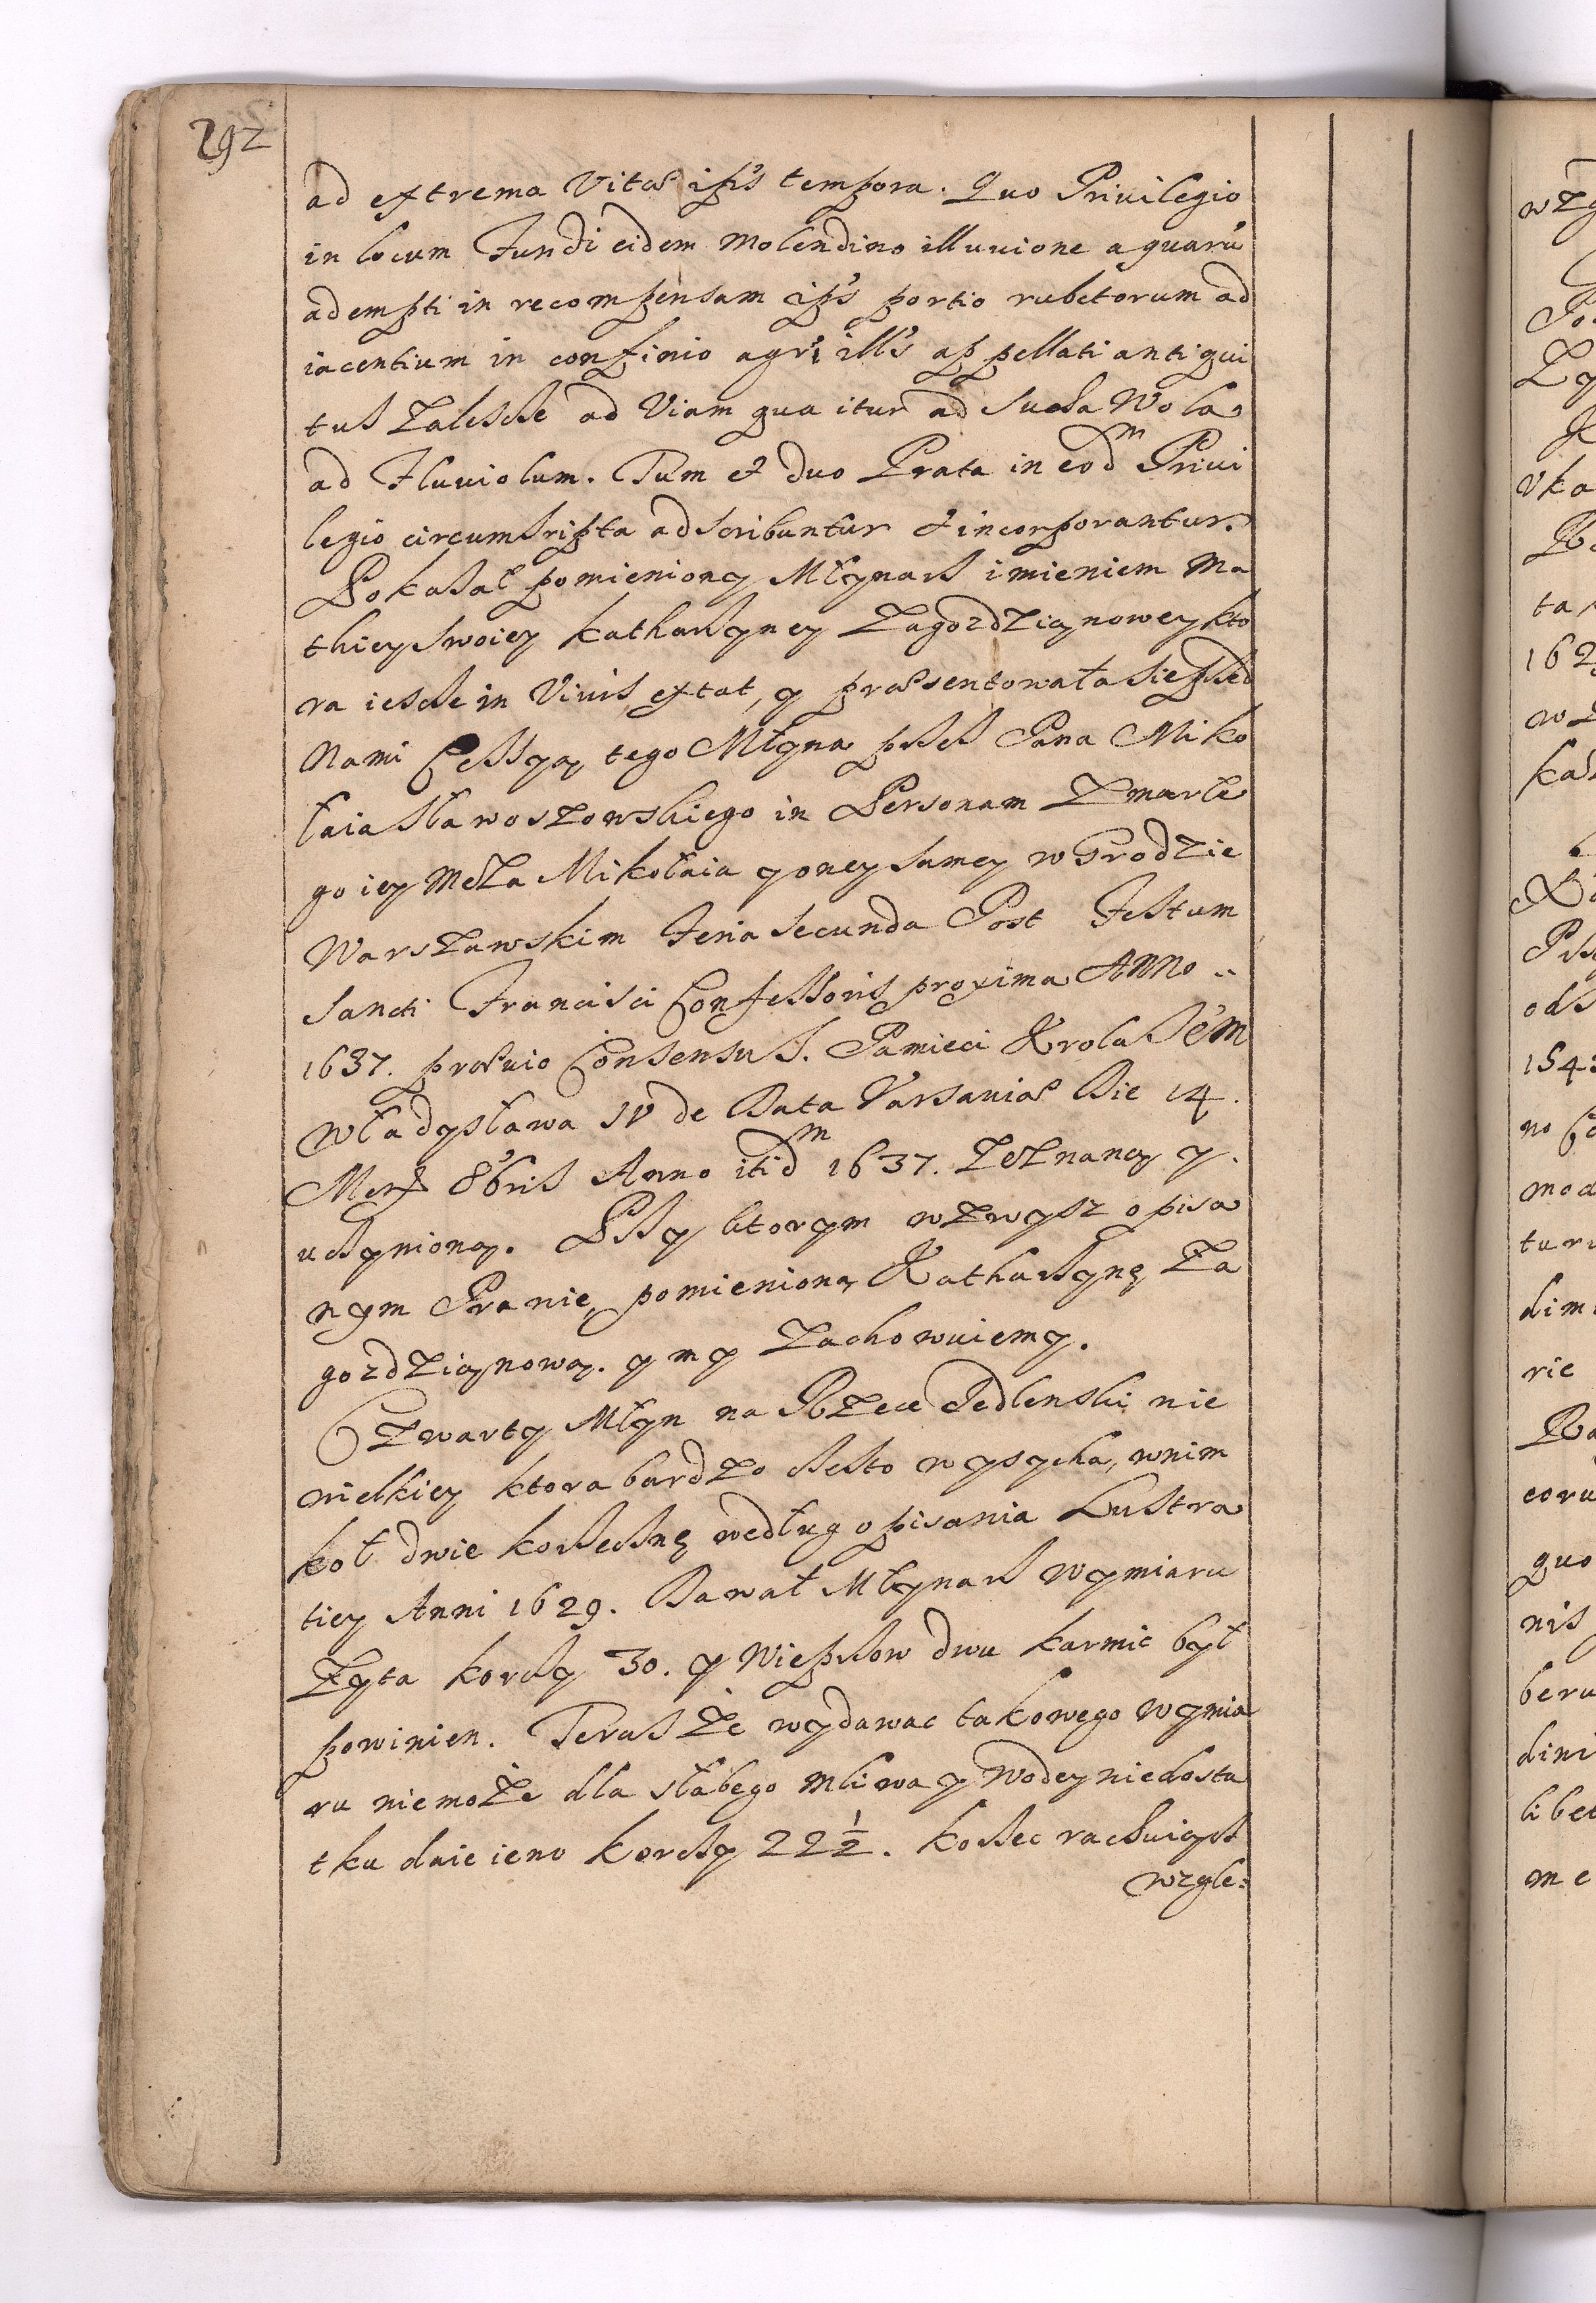 292
ad extrema Vitae ipīs tempora. Quo Priuilegio
in locum Fundi eidem Molendino illuuione aquarū
adempti in recompensam ipīs portio rubetorum ad
iacentium in confinio agri illīs appellati antiqui
tus Zalesche ad Viam qua itur ad Sucha Wola
ad Fluuiolum. Tum et duo Prata in eodm Priui
legio circumsripta adscribuntur et incorporantur.
Pokasał pomieniony Młynarz imieniem Ma
thiey swoiey Katharzyney Zagozdziąnowey kto
ra iescze in Viuis extat, y praesentowała się przed
Nami Cessyą tego Młyna przez Pana Miko
łaia Sławoszowskiego in Personam Zmarłe
go iey Męża Mikołaia y oney samey w Grodzie
Warszawskim Feria secunda Post Festum
Sancti Francisci Confessoris proxima Anno
1637. praeuio Consensu S. Pamieci Krola JeM
Władysława IV de Data Varsauiae Die 14.
Mens 8bris Anno itidm 1637. Zeznaną y
uczynioną. Przy ktorym wzwysz opisa
nym Pranie, pomienioną Katharzynę Za
gozdziąnową. y my Zachowuiemy.
Czwarty Młyn na Rzece Pedlenski nie
wielkiey ktora bardzo czesto wysycha, wnim
koł dwie korzecznę według opisania Lustra
tiey Anni 1629. Dawał Młynarz wymiaru
Zyta korcy 30. y Wieprzow dwu karmic był
powinien. Teraz że wydawac takowego wymia
ru niemoże dla słabego mliwa y wodey niedosta
tku daie ieno korcy 22 1/2. korzec rachuiąc
wzglę=